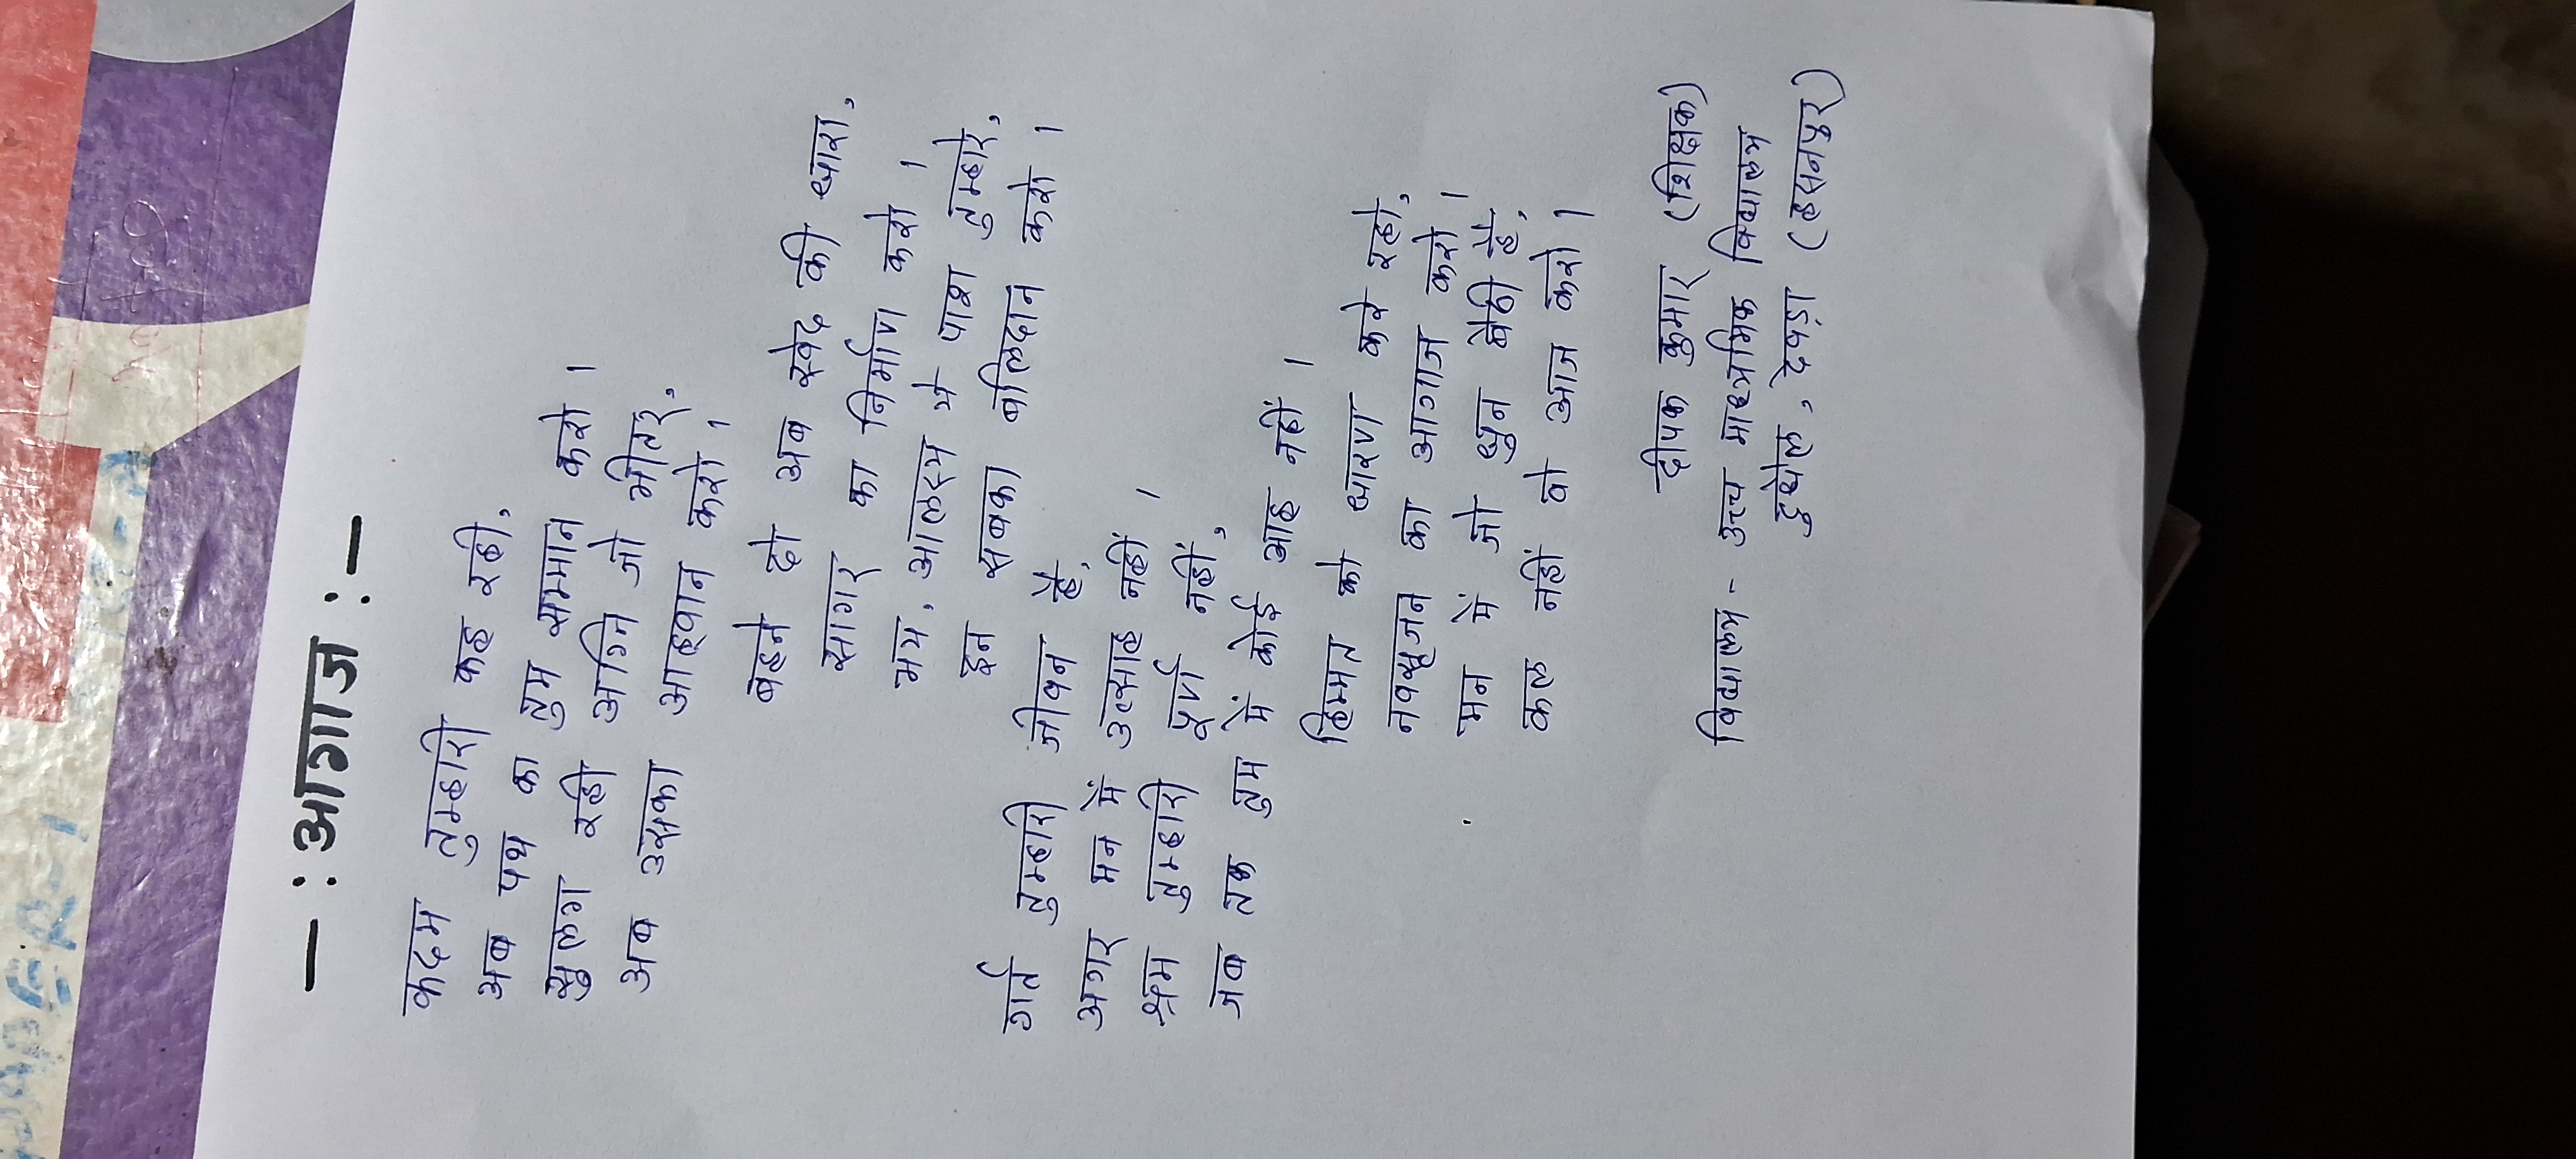 -: आगाज :-
कदम तुम्हारी कह रही,
अब पथ का तुम सम्मान करो ।
सुलग रही अग्नि जो भीतर,
अब उसका आह्वान करो ।
बहने दो अब स्वेद की धारा,
सागर का निर्माण करो ।
भय, आलस्य ये पाश तुम्हारे,
इन सबका बलिदान करो ।
गर्त तुम्हारी जीवन है,
अगर मन में उत्साह नहीं ।
श्रम तुम्हारी पूर्ण नहीं,
जब तक तुम में कोई आह नहीं ।
हिम्मत को धारण करे रहो,
नवसृजन का आगाज करो ।
मन में जो धुन बैठी है,
कल नहीं वो आज करो ।
दीपक कुमार (शिक्षक)
विद्यालय - उच्च माध्यमिक विद्यालय
दुधैल, देवड़ा (हसनपुर)